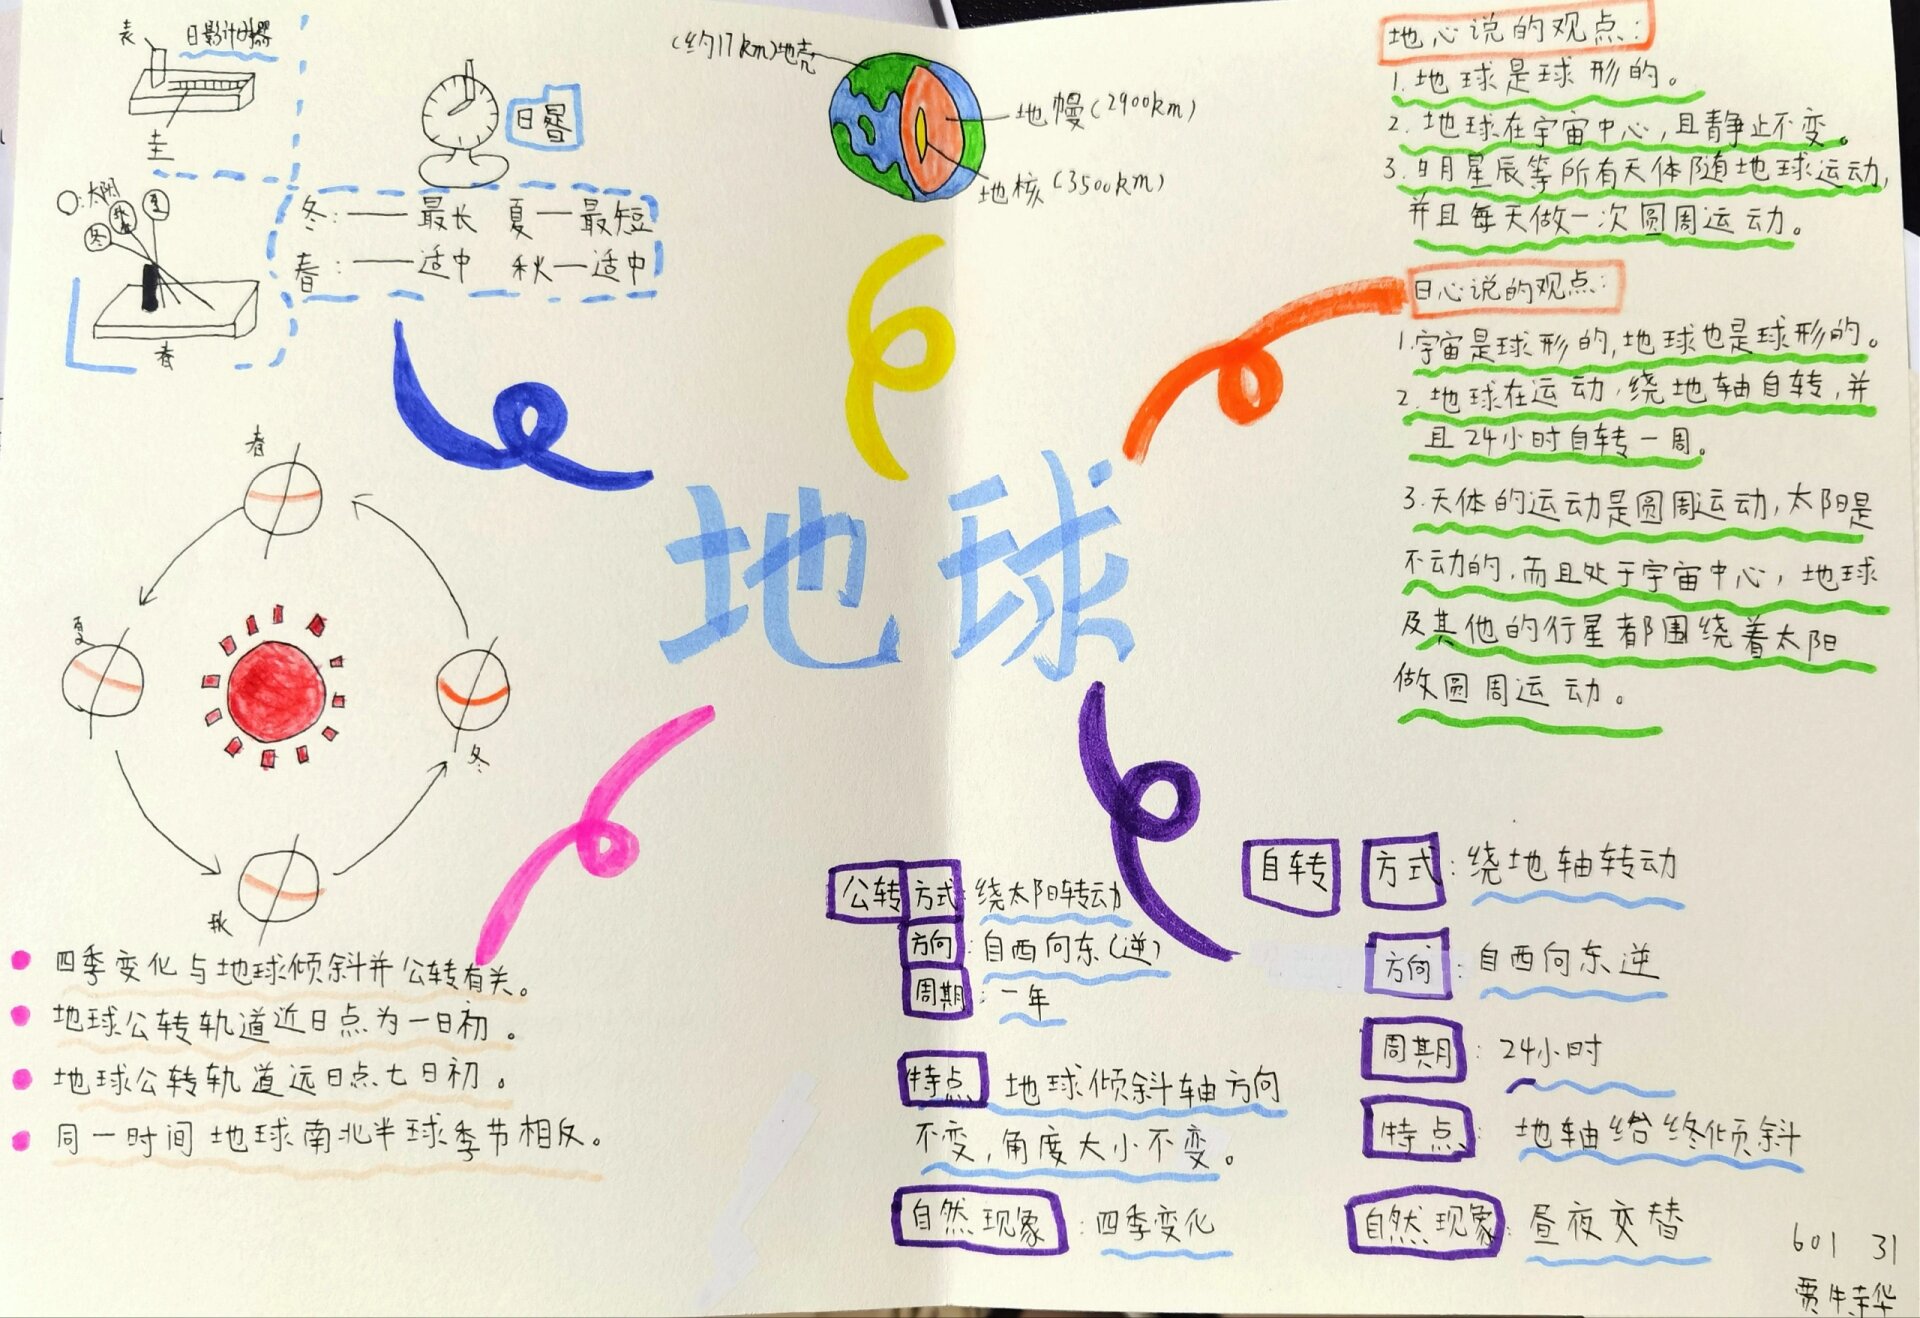 表
日影计时器
圭
日晷
○:太阳
冬
秋
夏
春
冬:——最长 夏—最短
春:——适中 秋—适中
(约17km)地壳
地幔(2900km)
地核(3500km)
地心说的观点:
1.地球是球形的。
2.地球在宇宙中心,且静止不变。
3.日月星辰等所有天体随地球运动,
并且每天做一次圆周运动。
日心说的观点:
1.宇宙是球形的,地球也是球形的。
2.地球在运动,绕地轴自转,并
且24小时自转一周。
3.天体的运动是圆周运动,太阳是
不动的,而且处于宇宙中心,地球
及其他的行星都围绕着太阳
做圆周运动。
地球
春
夏
冬
秋
四季变化与地球倾斜并公转有关。
地球公转轨道近日点为一日初。
地球公转轨道远日点七日初。
同一时间地球南北半球季节相反。
公转 方式:绕太阳转动
方向:自西向东(逆)
周期:一年
特点 地球倾斜轴方向
不变,角度大小不变。
自然现象:四季变化
自转 方式:绕地轴转动
方向:自西向东逆
周期:24小时
特点:地轴给终倾斜
自然现象:昼夜交替
601 31
贾 华